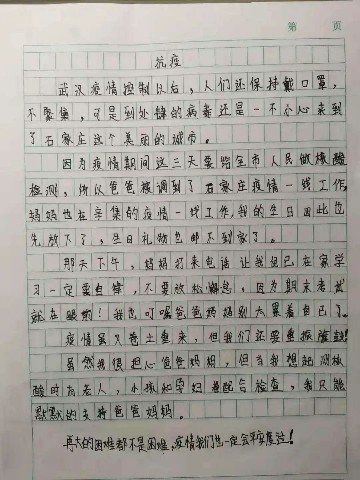 第 页
抗疫
武汉疫情控制以后，人们还保持戴口罩，
不聚集，可是到处肆的病毒还是一不小心来到
了石家庄这个美丽的城市。
因为疫情期间这三天要给全市人民做核酸
检测，所以爸爸被调到了石家庄疫情一线工作，
妈妈也在辛集的疫情一线工作，我的生日因此也
先放下了，生日礼物也邮不到家了。
那天下午，妈妈打来电话让我自己在家学
习一定要自律，不要放松懈怠，因为期末考试
就在眼前！我也叮嘱爸爸妈妈别太累着自己了。
疫情虽又卷土重来，但我们还要重振旗鼓！
虽然我很担心爸爸妈妈，但当我想起测核
酸时有老人，小孩和孕妇要配合检查，我只能
默默的支持爸爸妈妈。
再大的困难都不是困难，疫情我们也一定会平安度过！